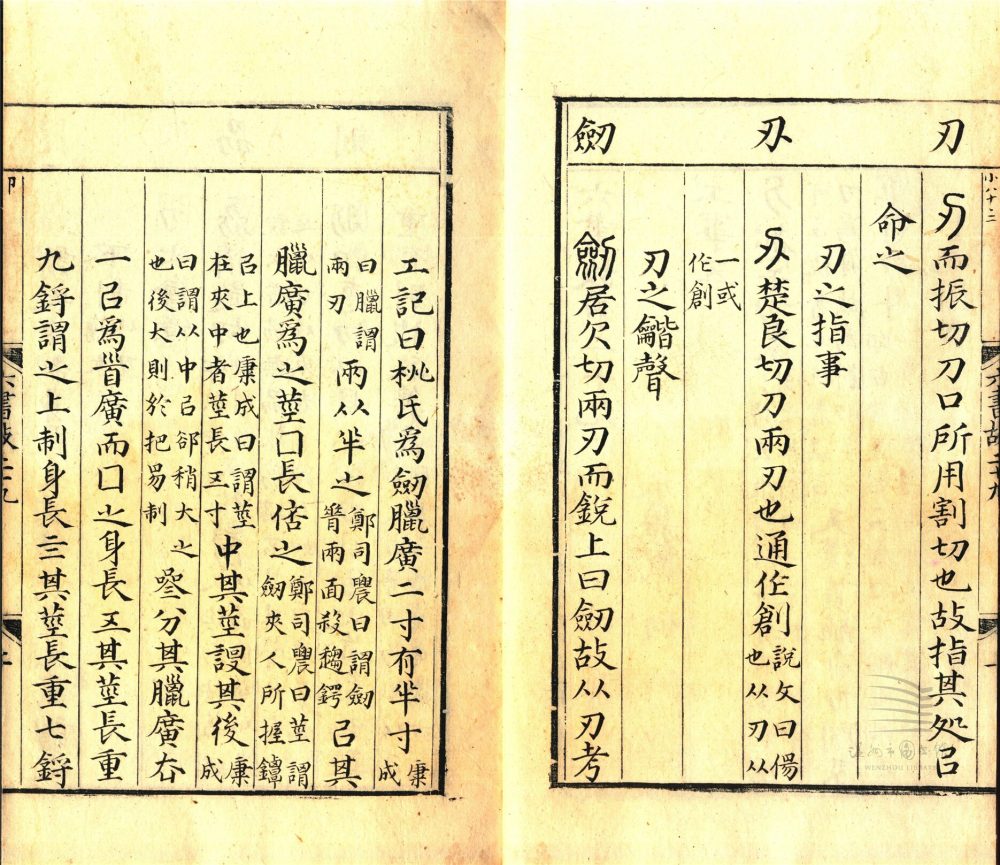 刃
刅
劒
小八十三
刃而振切刀口所用割切也故指其処㠯
命之
刃之指事
刅楚良切刀兩刃也通作創說文曰傷
也从刃从
一或
作創
刃之龤聲
劒居欠切兩刃而銳上曰劒故从刃考
六書故二十九
工記曰桃氏爲劒臘廣二寸有半寸康成
曰臘謂
兩刃
兩从半之鄭司農曰謂劒
脊兩面殺趨鍔
㠯其
臘廣爲之莖囗長倍之鄭司農曰莖謂
劒夾人所握鐔
㠯上也康成曰謂莖
在夾中者莖長五寸
中其莖設其後康成
曰謂从中㠯郤稍大之
也後大則於把易制
參分其臘廣去
一㠯爲首廣而囗之身長五其莖長重
九鋝謂之上制身長亖其莖長重七鋝
六書故二十九
WENZHOU LIBRARY